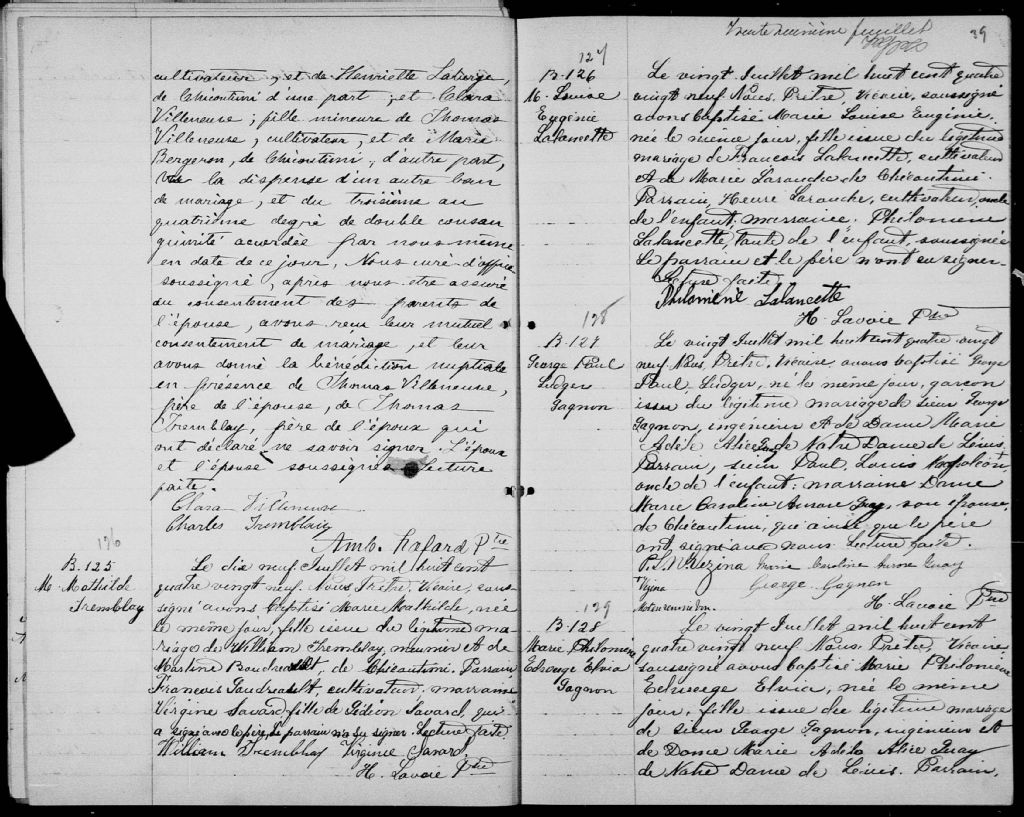 cultivateur, et de Henriette Laberge,
de Chicoutimi d'une part; et Clara
Villeneuve; fille mineure de Thomas
Villeneuve, cultivateur, et de Marie
Bergeron, de Chicoutimi, d'autre part,
vu la dispense d'un autre ban
de mariage, et du troisième au
quatrième degré de double consan
guinité accordée par nous-même
en date de ce jour, Nous curé d'office
soussigné, après nous être assuré
du consentement des parents de
l'épouse, avons reçu leur mutuel
consentement de mariage, et leur
avons donné la bénédiction nuptiale
en présence de Thomas Villeneuve,
père de l'épouse, de Thomas
Tremblay, père de l'époux qui
ont déclaré ne savoir signer. L'époux
et l'épouse soussignés. Lecture
faite.
Clara Villeneuve
Charles Tremblay
Amb. Fafard Ptre
126
B. 125
M. Mathilde
Tremblay
Le dix neuf Juillet mil huit cent
quatre vingt neuf. Nous Prêtre, Vicaire, sous
signé avons baptisé Marie Mathilde, née
le même jour, fille issue du légitime ma-
riage de William Tremblay, meunier et de
Martine Boudreault de Chicoutimi. Parrain
Francois Gaudreault, cultivateur, marraine
Virginie Savard, fille de Gédéon Savard, qui
a signé avec le père, le parrain n'a su signer. Lecture faite.
William Tremblay Virginie Savard
H. Lavoie Ptre
Trente neuvième feuillet
39
127
B-126
M. Louise
Eugénie
Lalancette
Le vingt Juillet mil huit cent quatre
vingt neuf. Nous, Prêtre, Vicaire, soussigné
avons baptisé Marie Louise Eugénie,
née le même jour, fille issue du légitime
mariage de François Lalancette, cultivateur
et de Marie Larouche de Chicoutimi.
Parrain, Henri Larouche, cultivateur, oncle
de l'enfant; marraine. Philomène
Lalancette, tante de l'enfant, soussignée
Le parrain et le père n'ont su signer-
Lecture faite
Philomène Lalancette
H. Lavoie Ptre
128
B-127
George Paul
Ludger
Gagnon
Le vingt Juillet mil huit cent quatre vingt
neuf. Nous, Prêtre, Vicaire, avons baptisé George
Paul Ludger, né le même jour, garçon
issu du légitime mariage de sieur George
Gagnon, ingénieur et de Dame Marie
Adèle Alice Guay de Notre Dame de Lévis.
Parrain, sieur Paul Louis Napoléon,
oncle de l'enfant: marraine Dame
Marie Caroline Aurore Guay, son épouse,
de Chicoutimi, qui ainsi que le père
ont signé avec nous. Lecture faite.
P. L. N. Vézina Marie Caroline Aurore Guay
Vézina
George Gagnon
H. Lavoie Ptre
129
B-128
Marie Philomène
Edwege Elvia
Gagnon
Le vingt Juillet mil huit cent
quatre vingt neuf Nous Prêtre, Vicaire,
soussigné avons baptisé Marie Philomène
Edwege Elvia, née le même
jour, fille issue du légitime mariage
de sieur George Gagnon, ingénieur et
de Dame Marie Adèla Alice Guay
de Notre Dame de Lévis. Parrain,